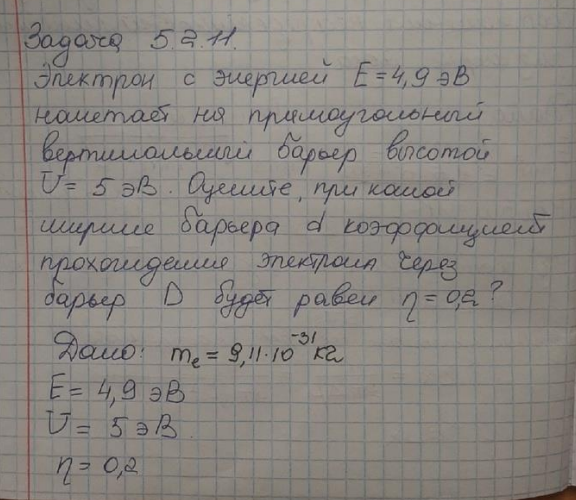 Задача 5.2.11.
Электрон с энергией E = 4,9 эВ
налетает на прямоугольный
вертикальный барьер высотой
U = 5 эВ. Оцените, при какой
ширине барьера d коэффициент
прохождения электрона через
барьер D будет равен η = 0,2?
Дано: mₑ = 9,11·10⁻³¹ кг
E = 4,9 эВ
U = 5 эВ.
η = 0,2